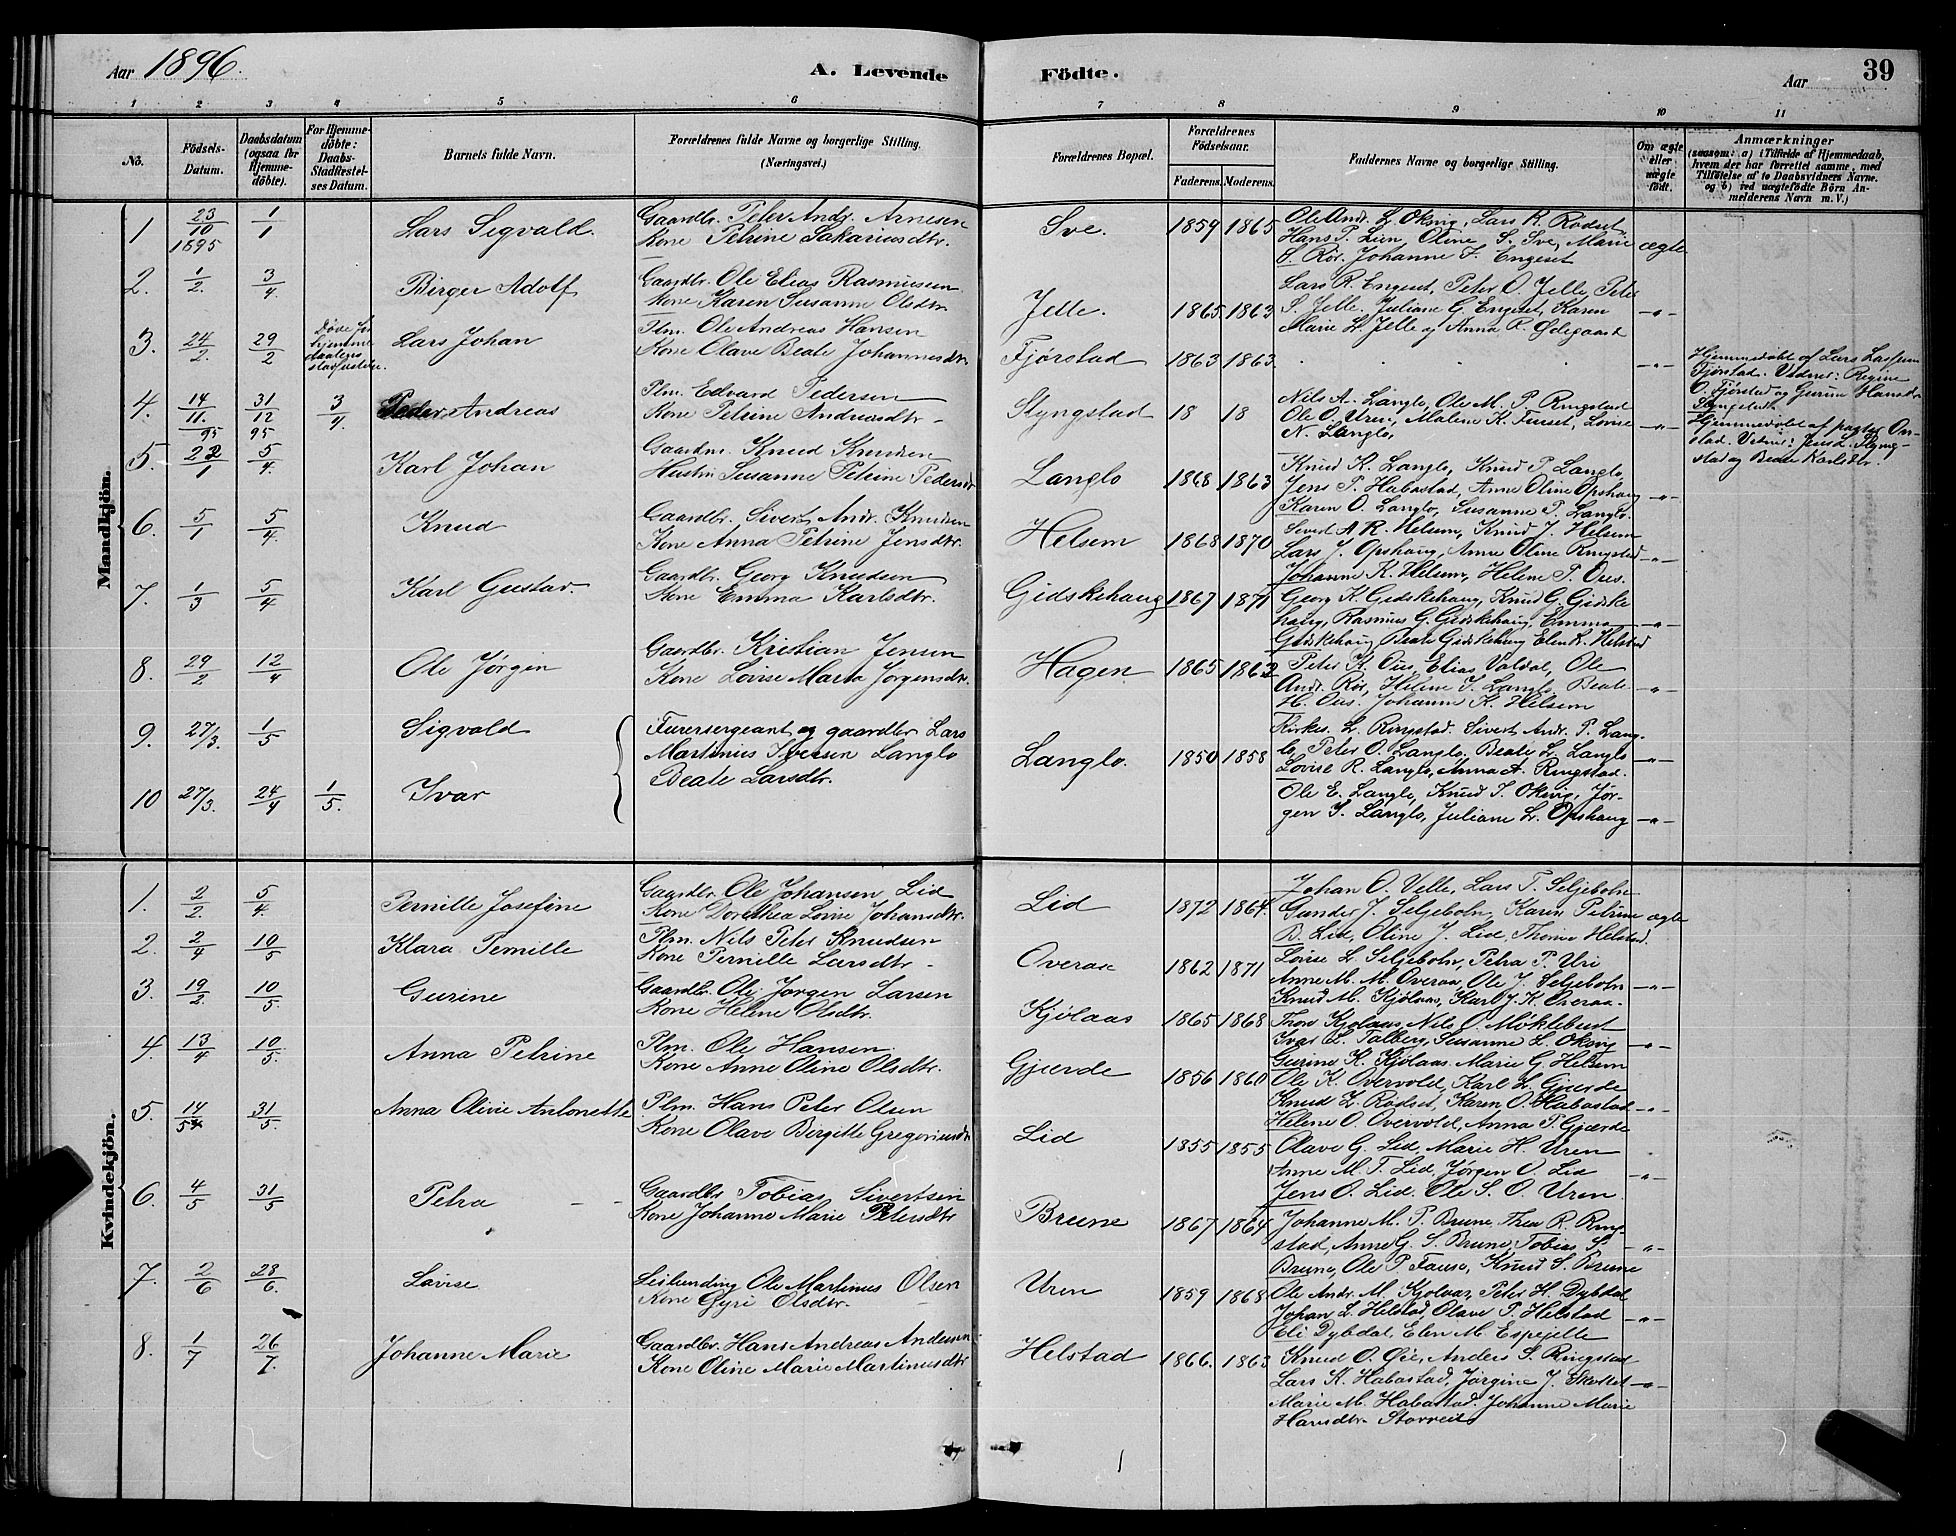 Aar 1896.
A. Levende
Födte.
Aar
39
1 2 3 4 5 6 7 8 9 10 11
No.
Födsels-
Datum.
Daabsdatum
(ogsaa for
Hjemme-
döbte).
For Hjemme-
döbte:
Daabs-
Stadfæstel-
ses Datum.
Barnets fulde Navn.
Forældrenes fulde Navne og borgerlige Stilling.
(Næringsvei.)
Forældrenes Bopæl.
Forældrenes
Födselsaar.
Faderens.
Moderens.
Faddernes Navne og borgerlige Stilling.
Om ægte
eller
uægte
født.
Anmærkninger
(saasom: a) i Tilfælde af Hjemmedaab,
hvem der har forrettet samme, med
Tilföielse af to Daabsvidners Navne,
og b) ved uægtefödte Börn An-
melderens Navn m. V.)
Mandkjön.
1
23/10 1895
1/1
Lars Sigvald.
Gaardbr. Peter Andr. Arnesen
Kone Petrine Sakariasdtr.
Sve.
1859 1865
Ole Andr. L. Okvig, Lars R. Rödset,
Hans P. Lien, Oline S. Sve, Marie
Rör, Johanne F. Engeset
ægte
2.
1/2.
3/4.
Birger Adolf
Gaardbr. Ole Elias Rasmussen
Kone Karen Susanne Olsdtr.
Jelle.
1865 1863
Lars R. Engeset, Peter O. Jelle, Peter
S. Jelle, Juliane G. Engeset, Karen
Marie L. Jelle og Anne R. Ødegaard
-"-
3.
24/2.
29/2
stadfæstelse.
Lars Johan
Plm. Ole Andreas Hansen
Kone Olave Beate Johannesdtr.
Fjørstad
1863 1863.
-"-
Hjemmedöbt af Lars
Fjørstad. Vidner: Regine
O. Fjørstad og Gurine Hansdtr.
4.
14/11. 95
31/12 95
3/4.
Peder Andreas
Plm. Edvard Pedersen
Kone Petrine Andreasdtr -
Styngstad
18 18
Nils A. Langlo, Ole M. P. Ringstad
Ole O. Uren, Malene K. Furset, Lovise
N. Langlo,
-"-
Hjemmedöbt af pastor On-
stad. Vidner: Styng-
stad og Beate Karlsdtr.
5.
22/1
5/4.
Karl Johan
Gaardm. Knud Knudsen
Hustru Susanne Petrine Pedersdtr
Langlo
1868 1863
Knud K. Langlo, Knud P. Langlo
Jens P. Habostad, Anne Oline Opshaug
Karen O. Langlo, Susanne P. Langlo.
-"-
6.
5/1
5/4.
Knud
Gaardbr. Sivert Andr. Knudsen
Kone Anna Petrine Jensdtr.
Helsem
1868 1870
Sivert A. R. Helsem, Knud J. Helsem
Lars J. Opshaug, Anne Oline Ringstad
Johanne K. Helsem, Helene P. Ous.
-"-
7.
1/3
5/4
Karl Gustav.
Gaardbr. Georg Knudsen
Kone Emma Karlsdtr.
Gidskehaug
1867 1871
Georg K. Gidskehaug, Knud G. Gidske
haug, Rasmus G. Gidskehaug, Emma
Gidskehaug Beate Gidskehaug Elen L. Helstad
-"-
8.
29/2
12/4
Ole Jørgen
Gaardbr. Kristian Jensen
Kone Lovise Marta Jørgensdtr.
Hagen
1865 1862
Peter K. Ous, Elias Valdal, Ole
Andr. Rör, Helene I. Langlo, Beate
H. Ous. Johanne K. Helsem
-"-
9.
27/3.
1/5
Sigvald
Furersergeant og gaardbr Lars
Martinius Iversen Langlo
Beate Larsdtr.
Langlo.
1850 1858
Kirkes. L. Ringstad. Sivert Andr. P. Lang-
lo, Peter O. Langlo. Beate L. Langlo
Lovise R. Langlo, Anna A. Ringstad.
-"-
10
27/3.
24/4
1/5.
Ivar
Ole E. Langlo, Knud S. Okvig, Jør-
gen I. Langlo, Juliane L. Opshaug
-"-
Kvindekjön.
1.
2/2.
5/4.
Pernille Josefine
Gaardbr. Ole Johansen Lid
Kone Dorethea Lovise Johansdtr.
Lid
1872 1864.
Johan O. Velle, Lars T. Seljebotn
Gunder J. Seljebotn, Karen Petrine
B. Lid, Oline J. Lid, Thomine Helstad.
ægte
2.
2/4
10/5
Klara Pernille
Plm. Nils Peter Knudsen
Kone Pernille Larsdtr -
Overaa
1862 1871
Lovise L. Seljebotn, Petra P. Uri
Anne M. M. Overaa, Ole J. Seljebotn
Knud M. Kjölaas, Karl J. K. Overaa.
-"-
3.
19/2.
10/5.
Gurine
Gaardbr. Ole Jørgen Larsen
Kone Helene Olsdtr.
Kjölaas
1865 1868
Thore Kjölaas, Nils O. Möklebust
Ivar L. Talberg, Susanne L. Okvig
Gurine K. Kjölaas. Marie G. Helsem
-"-
4.
13/4
10/5.
Anna Petrine
Plm. Ole Hansen
Kone Anne Oline Olsdtr.
Gjærde
1856 1860
Ole K. Overvold, Karl L. Gjærde
Knud L. Rödset, Karen O. Habostad
Helene O. Overvold, Anna P. Gjærde
-"-
5.
14/5
31/5.
Anna Olivie Antonette
Plm. Hans Peter Olsen
Kone Olave Birgitte Gregoriusdtr
Lid
1855 1855
Olave G. Lid, Marie H. Uren
Anne M. T. Lid, Jørgen O. Lid
Jens O. Lid. Ole S. O. Uren
-"-
6.
4/5
31/5
Petra
Gaardbr Tobias Sivertsen
Kone Johanne Marie Petersdtr
Brune
1867 1864
Johanne M. P. Brune, Thea R. Ring-
stad, Anne G. S. Brune, Tobias S.
Brune, Ole P. Fause, Knud S. Brune
-"-
7.
2/6
28/6.
Lovise
Leilending Ole Martinus Olsen
Kone Gyri Olsdtr.
Uren
1859 1868
Ole Andr. M. Kjølaas, Peter H. Dybdal
Johan L. Helstad, Olave P. Helstad
Eli Dybdal, Elen M. Espejelle
-"-
8.
1/7
26/7.
Johanne Marie
Gaardbr. Hans Andreas Andersen
Kone Oline Marie Martinusdtr
Helstad
1866. 1863
Knud O. Øie, Anders S. Ringstad
Lars K. Habostad, Jørgine J.
Marie M. Habostad. Johanne Marie
Hansdtr. Storreit
-"-